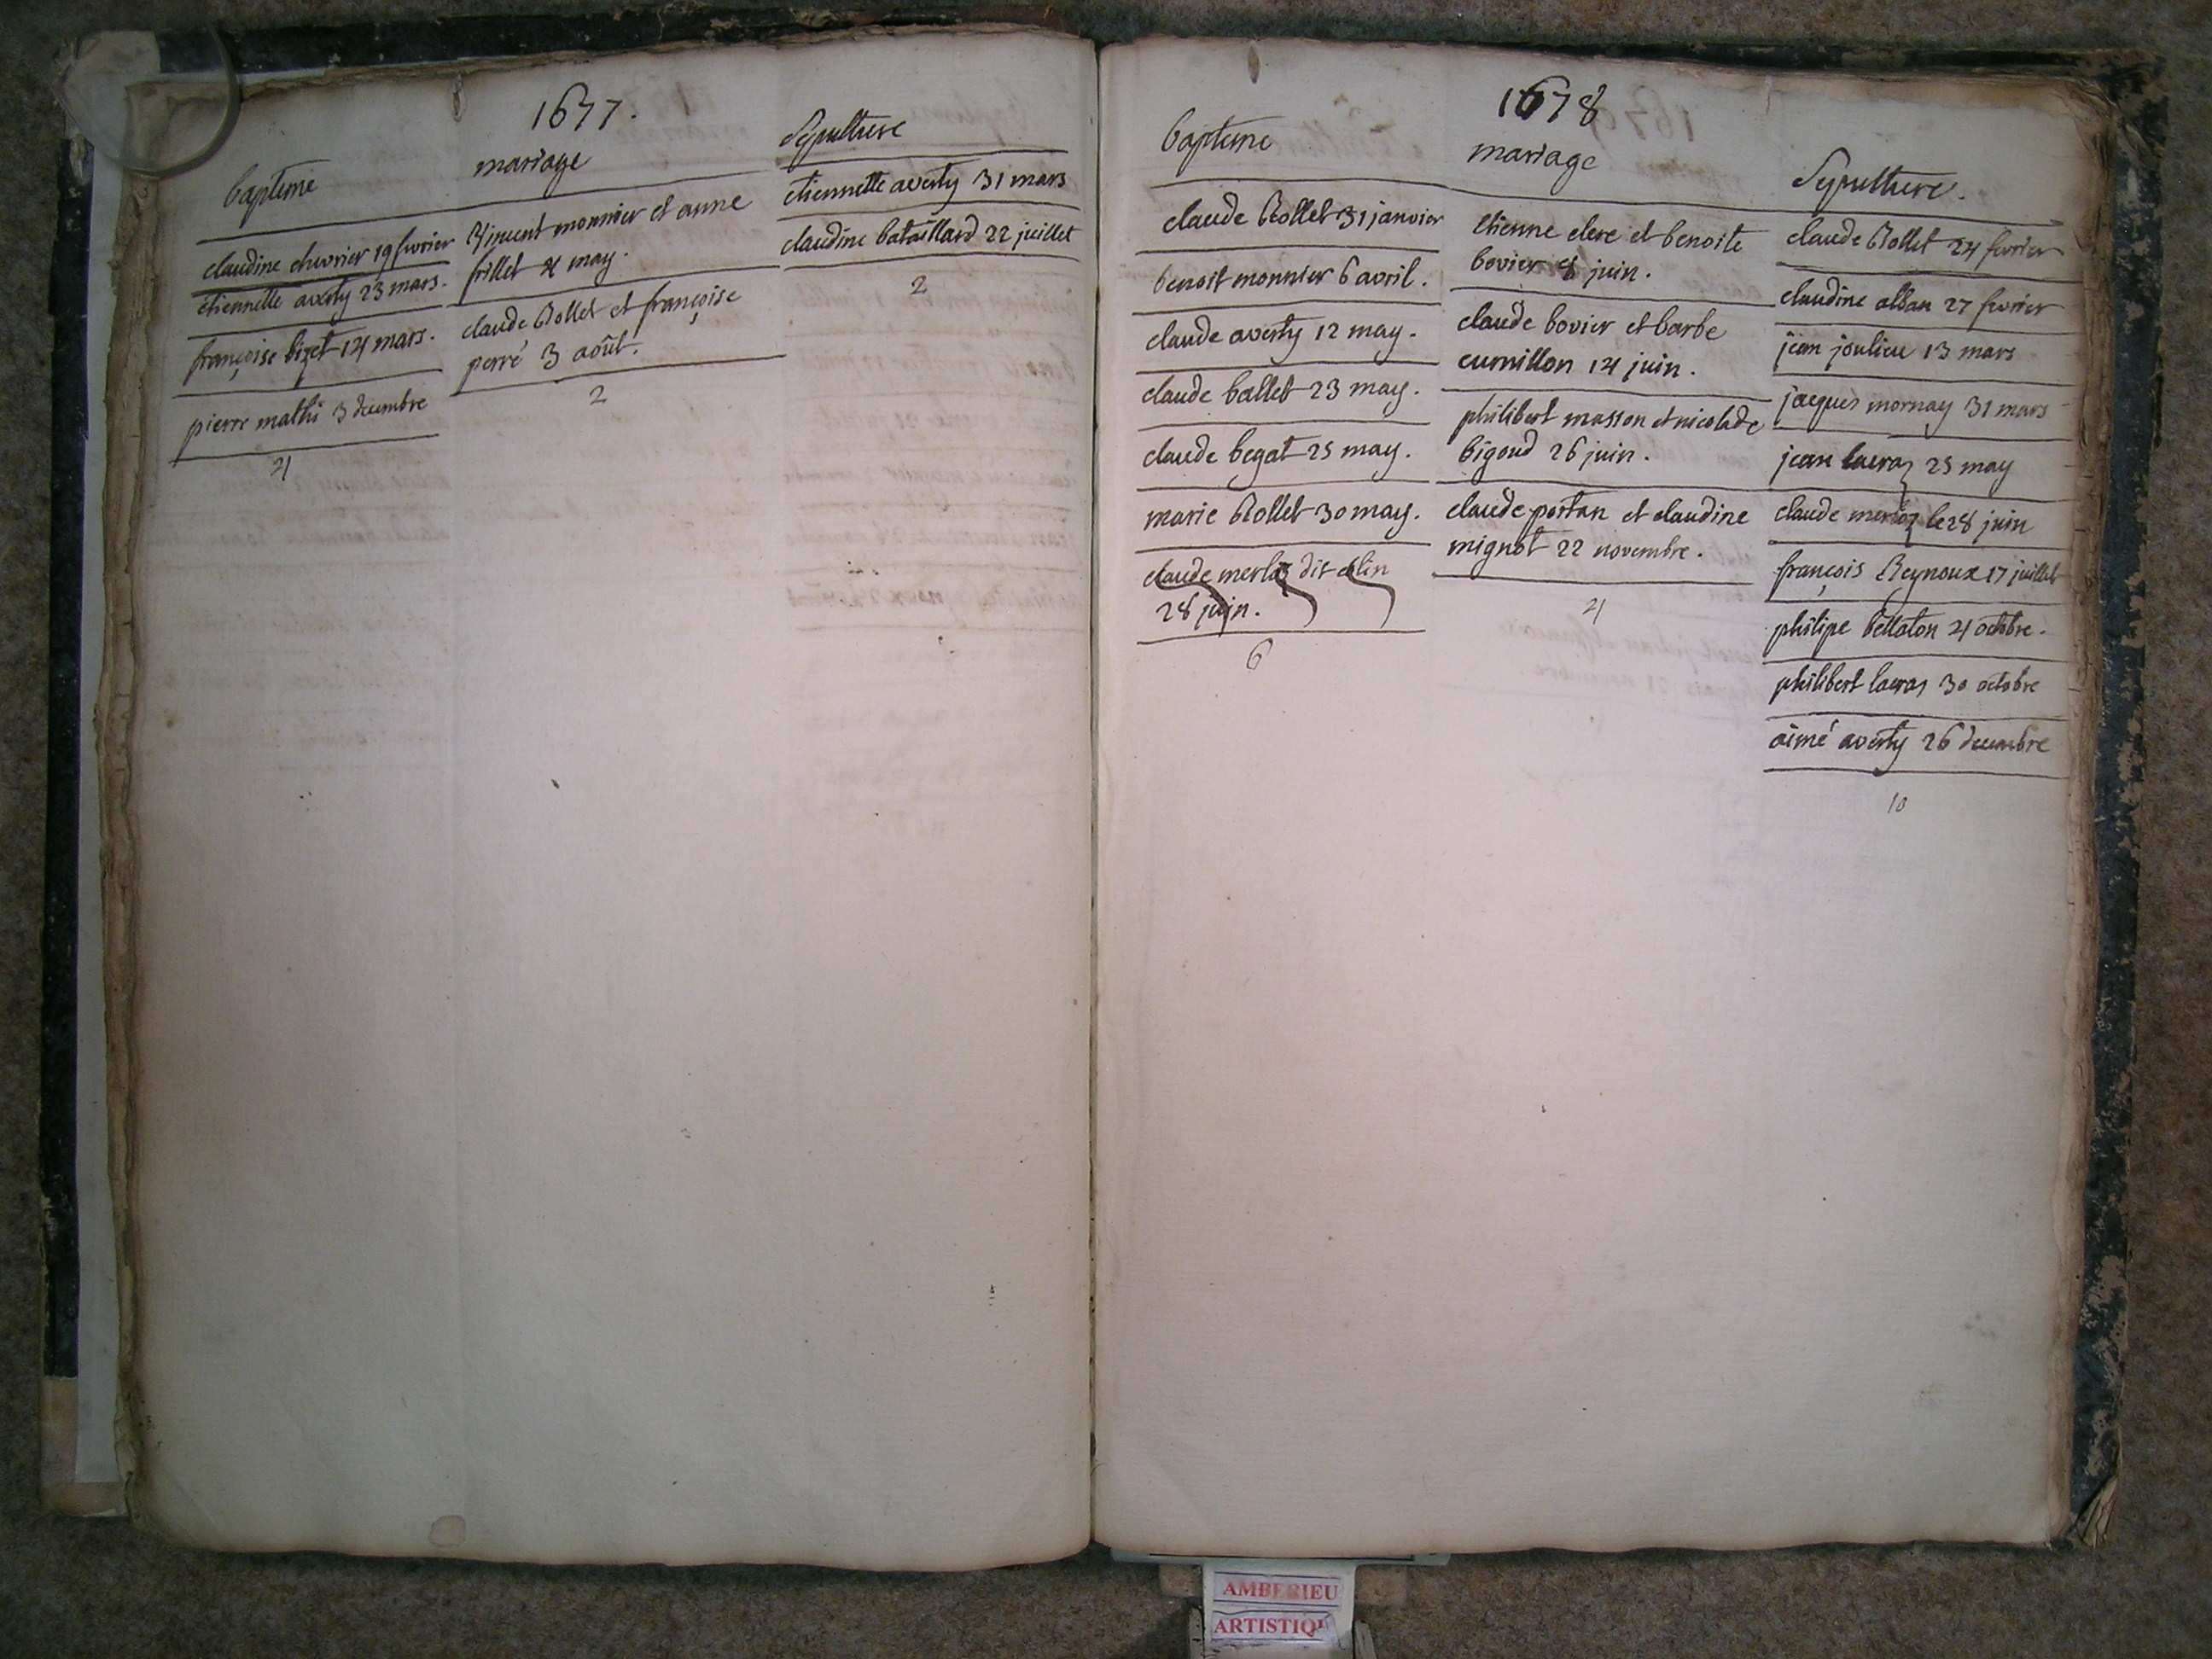 1677.
baptême
claudine chevrier 19 fevrier
etiennette averty 23 mars.
françoise bizet 14 mars.
pierre mathi 3 decembre
4
mariage
Vincent monnier et anne
frillet may.
claude Rollet et françoise
perré 3 août.
2
Sepulture
etiennette averty 31 mars
claudine bataillard 22 juillet
2
1678
baptême
claude Rollet 31 janvier
benoit monnier 6 avril.
claude averty 12 may.
claude ballet 23 may.
claude begat 25 may.
marie Rollet 30 may.
claude merloz dit colin
28 juin.
6
mariage
etienne clerc et benoite
bovier 8 juin.
claude bovier et barbe
curnillon 14 juin.
philibert masson et nicolade
bigoud 26 juin.
claude portan et claudine
mignot 22 novembre.
4
Sepulture.
claude Rollet 24 fevrier
claudine alban 27 fevrier
jean joulieu 13 mars
jacques mornay 31 mars
jean lacraz 25 may
claude merloz le 28 juin
françois Reynoux 17 juillet
philipe bellaton 4 octobre.
philibert lacraz 30 octobre
aimé averty 26 decembre
10
AMBERIEU
ARTISTIQU